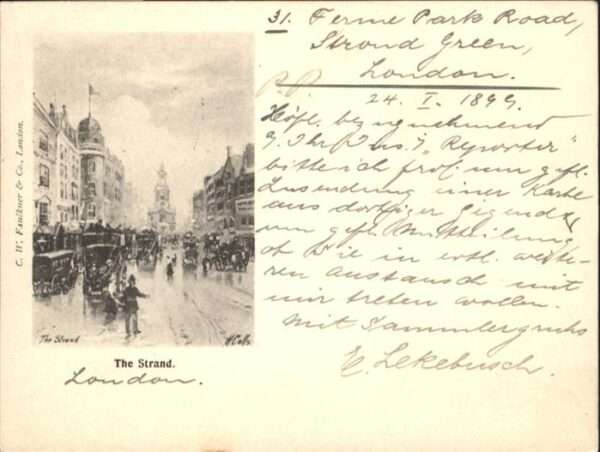 31. Ferme Park Road,
Stroud Green,
London.
P.P.
24. I. 1899.
Höfl. bezugnehmend
Ihr Ins. i/ "Reporter"
bitte ich um gefl.
Zusendung einer Karte
aus dortiger Gegend &
um gefl. Mittheilung
ob Sie in evtl. weite-
ren Austausch mit
mir treten wollen.
Mit Sammlergruss
E. Lekebusch.
C. W. Faulkner & Co., London.
The Strand
The Strand.
London.